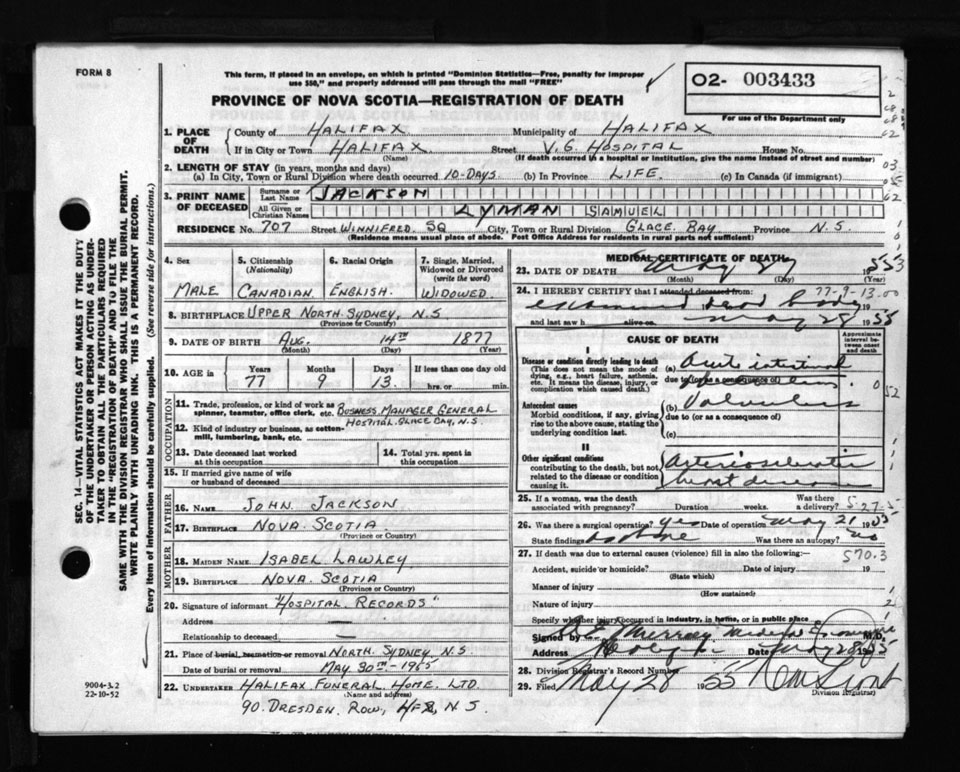 FORM 8
This form, if placed in an envelope, on which is printed "Dominion Statistics—Free, penalty for improper
use $50," and properly addressed will pass through the mail "FREE"
PROVINCE OF NOVA SCOTIA—REGISTRATION OF DEATH
02- 003433
For use of the Department only
1. PLACE OF DEATH
County of HALIFAX Municipality of HALIFAX
If in City or Town HALIFAX Street V.G. HOSPITAL House No.
(Name) (If death occurred in a hospital or institution, give the name instead of street and number)
2. LENGTH OF STAY (in years, months and days)
(a) In City, Town or Rural Division where death occurred 10-DAYS (b) In Province LIFE. (c) In Canada (if immigrant)
3. PRINT NAME OF DECEASED
Surname or Last Name JACKSON
All Given or Christian Names LYMAN SAMUEL
RESIDENCE No. 707 Street WINNIFRED SQ City, Town or Rural Division GLACE BAY Province N.S.
(Residence means usual place of abode. Post Office Address for residents in rural parts not sufficient)
4. Sex MALE
5. Citizenship (Nationality) CANADIAN
6. Racial Origin ENGLISH.
7. Single, Married, Widowed or Divorced (write the word) WIDOWED
8. BIRTHPLACE UPPER NORTH SYDNEY, N.S
(Province or Country)
9. DATE OF BIRTH AUG. 14TH 1877
(Month) (Day) (Year)
10. AGE in Years Months Days If less than one day
77 9 13 hrs. or min.
OCCUPATION
11. Trade, profession, or kind of work as spinner, teamster, office clerk, etc. BUSINESS MANAGER GENERAL
HOSPITAL GLACE BAY, N.S
12. Kind of industry or business, as cotton-mill, lumbering, bank, etc.
13. Date deceased last worked at this occupation
14. Total yrs. spent in this occupation
15. If married give name of wife or husband of deceased
FATHER
16. NAME JOHN JACKSON
17. BIRTHPLACE NOVA SCOTIA
(Province or Country)
MOTHER
18. MAIDEN NAME ISABEL LAWLEY
19. BIRTHPLACE NOVA SCOTIA
(Province or Country)
20. Signature of informant "HOSPITAL RECORDS"
Address —
Relationship to deceased —
21. Place of burial, cremation or removal NORTH SYDNEY, N.S
Date of burial or removal MAY 30TH-1955
22. UNDERTAKER HALIFAX FUNERAL HOME LTD.
(Name and address)
90. DRESDEN. ROW, HFX, N.S
MEDICAL CERTIFICATE OF DEATH
23. DATE OF DEATH May 27 1955
(Month) (Day) (Year)
77-9-13-00
24. I HEREBY CERTIFY that I attended deceased from:
examined dead body
and last saw h alive on May 28 1955
CAUSE OF DEATH
Approximate interval between onset and death
I
Disease or condition directly leading to death
(This does not mean the mode of dying, e.g., heart failure, asthenia, etc. It means the disease, injury, or complication which caused death.)
(a) Acute intestinal
due to (or as a consequence of)
Antecedent causes
Morbid conditions, if any, giving rise to the above cause, stating the underlying condition last.
(b) Volvulus
due to (or as a consequence of)
(c)
II
Other significant conditions contributing to the death, but not related to the disease or condition causing it.
Arteriosclerotic
heart disease
25. If a woman, was the death associated with pregnancy? Duration weeks. Was there a delivery?
5-27-5
26. Was there a surgical operation? yes Date of operation May 21 1955
State findings as above Was there an autopsy? no
27. If death was due to external causes (violence) fill in also the following:—
570.3
Accident, suicide or homicide? Date of injury 19
(State which)
Manner of injury
(How sustained)
Nature of injury
Specify whether injury occurred in industry, in home, or in public place
Signed by Murray Medical Examiner M.D.
Address Halifax Date May 28 1955
28. Division Registrar's Record Number
29. Filed May 28 1955
Division Registrar)
SEC. 14—VITAL STATISTICS ACT MAKES IT THE DUTY
OF THE UNDERTAKER OR PERSON ACTING AS UNDER-
TAKER TO OBTAIN ALL THE PARTICULARS REQUIRED
IN THE "REGISTRATION OF DEATH" AND TO FILE THE
SAME WITH THE DIVISION REGISTRAR WHO SHALL ISSUE THE BURIAL PERMIT.
WRITE PLAINLY WITH UNFADING INK. THIS IS A PERMANENT RECORD.
Every item of information should be carefully supplied. (See reverse side for instructions.)
9004-3.2
22-10-52